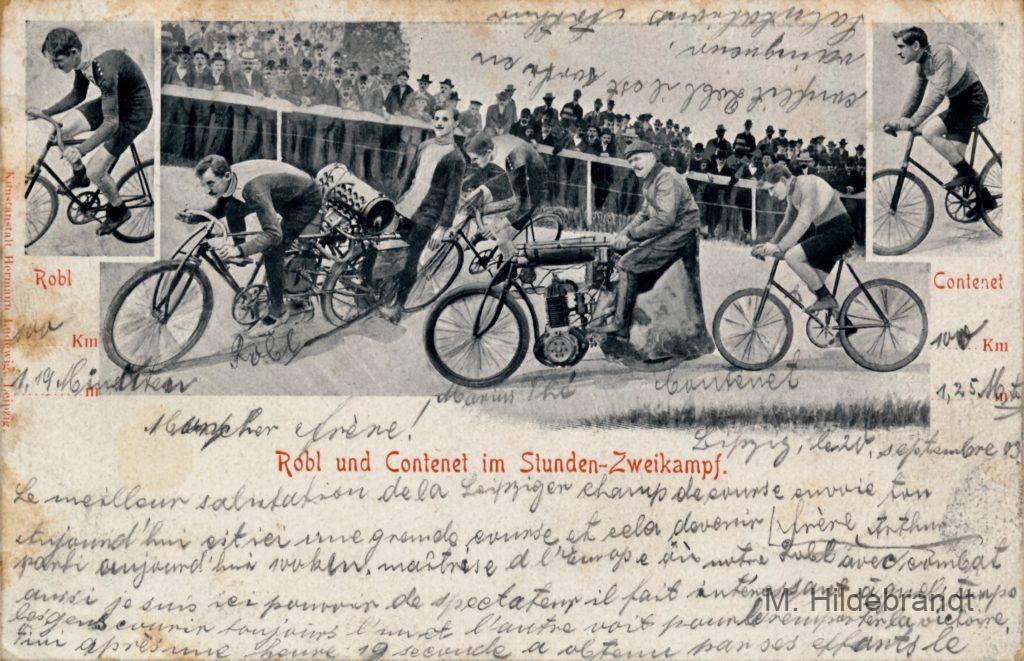 Robl
Contenet
100 Km
1,19 M
100 Km
1,25 M
Robl
Contenet
Kunstanstalt Hermann Ludwig, Leipzig.
Mon cher frère!
Leipzig, le 20. septembre 03.
Robl und Contenet im Stunden-Zweikampf.
Le meilleur salutation de la Leipziger champ de course envoie ton
frère Arthur
aujourd'hui est ici une grande course et cela devenir
parti aujourd'hui maîtrise d'l'Europe où notre Robl avec combat
aussi je suis ici pour de spectateur il fait intéressant
les gens courir toujours l'un et l'autre voit pour le remporter la victoire,
fini après une heure 19 seconde a obtenu par ses efforts le
conflit Robl il est
vainqueur.
Salutations Arthur
M. Hildebrandt